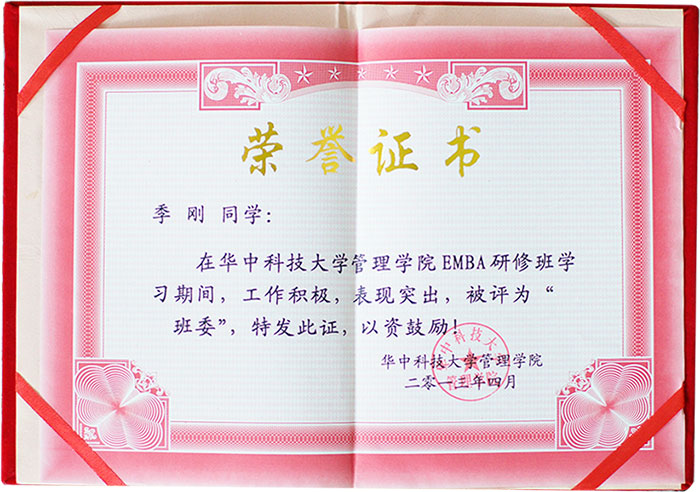 荣誉证书
季 刚 同学：
在华中科技大学管理学院EMBA研修班学
习期间，工作积极，表现突出，被评为“
班委”，特发此证，以资鼓励！
华中科技大学管理学院
二零一三年四月
华中科技大
管理学院